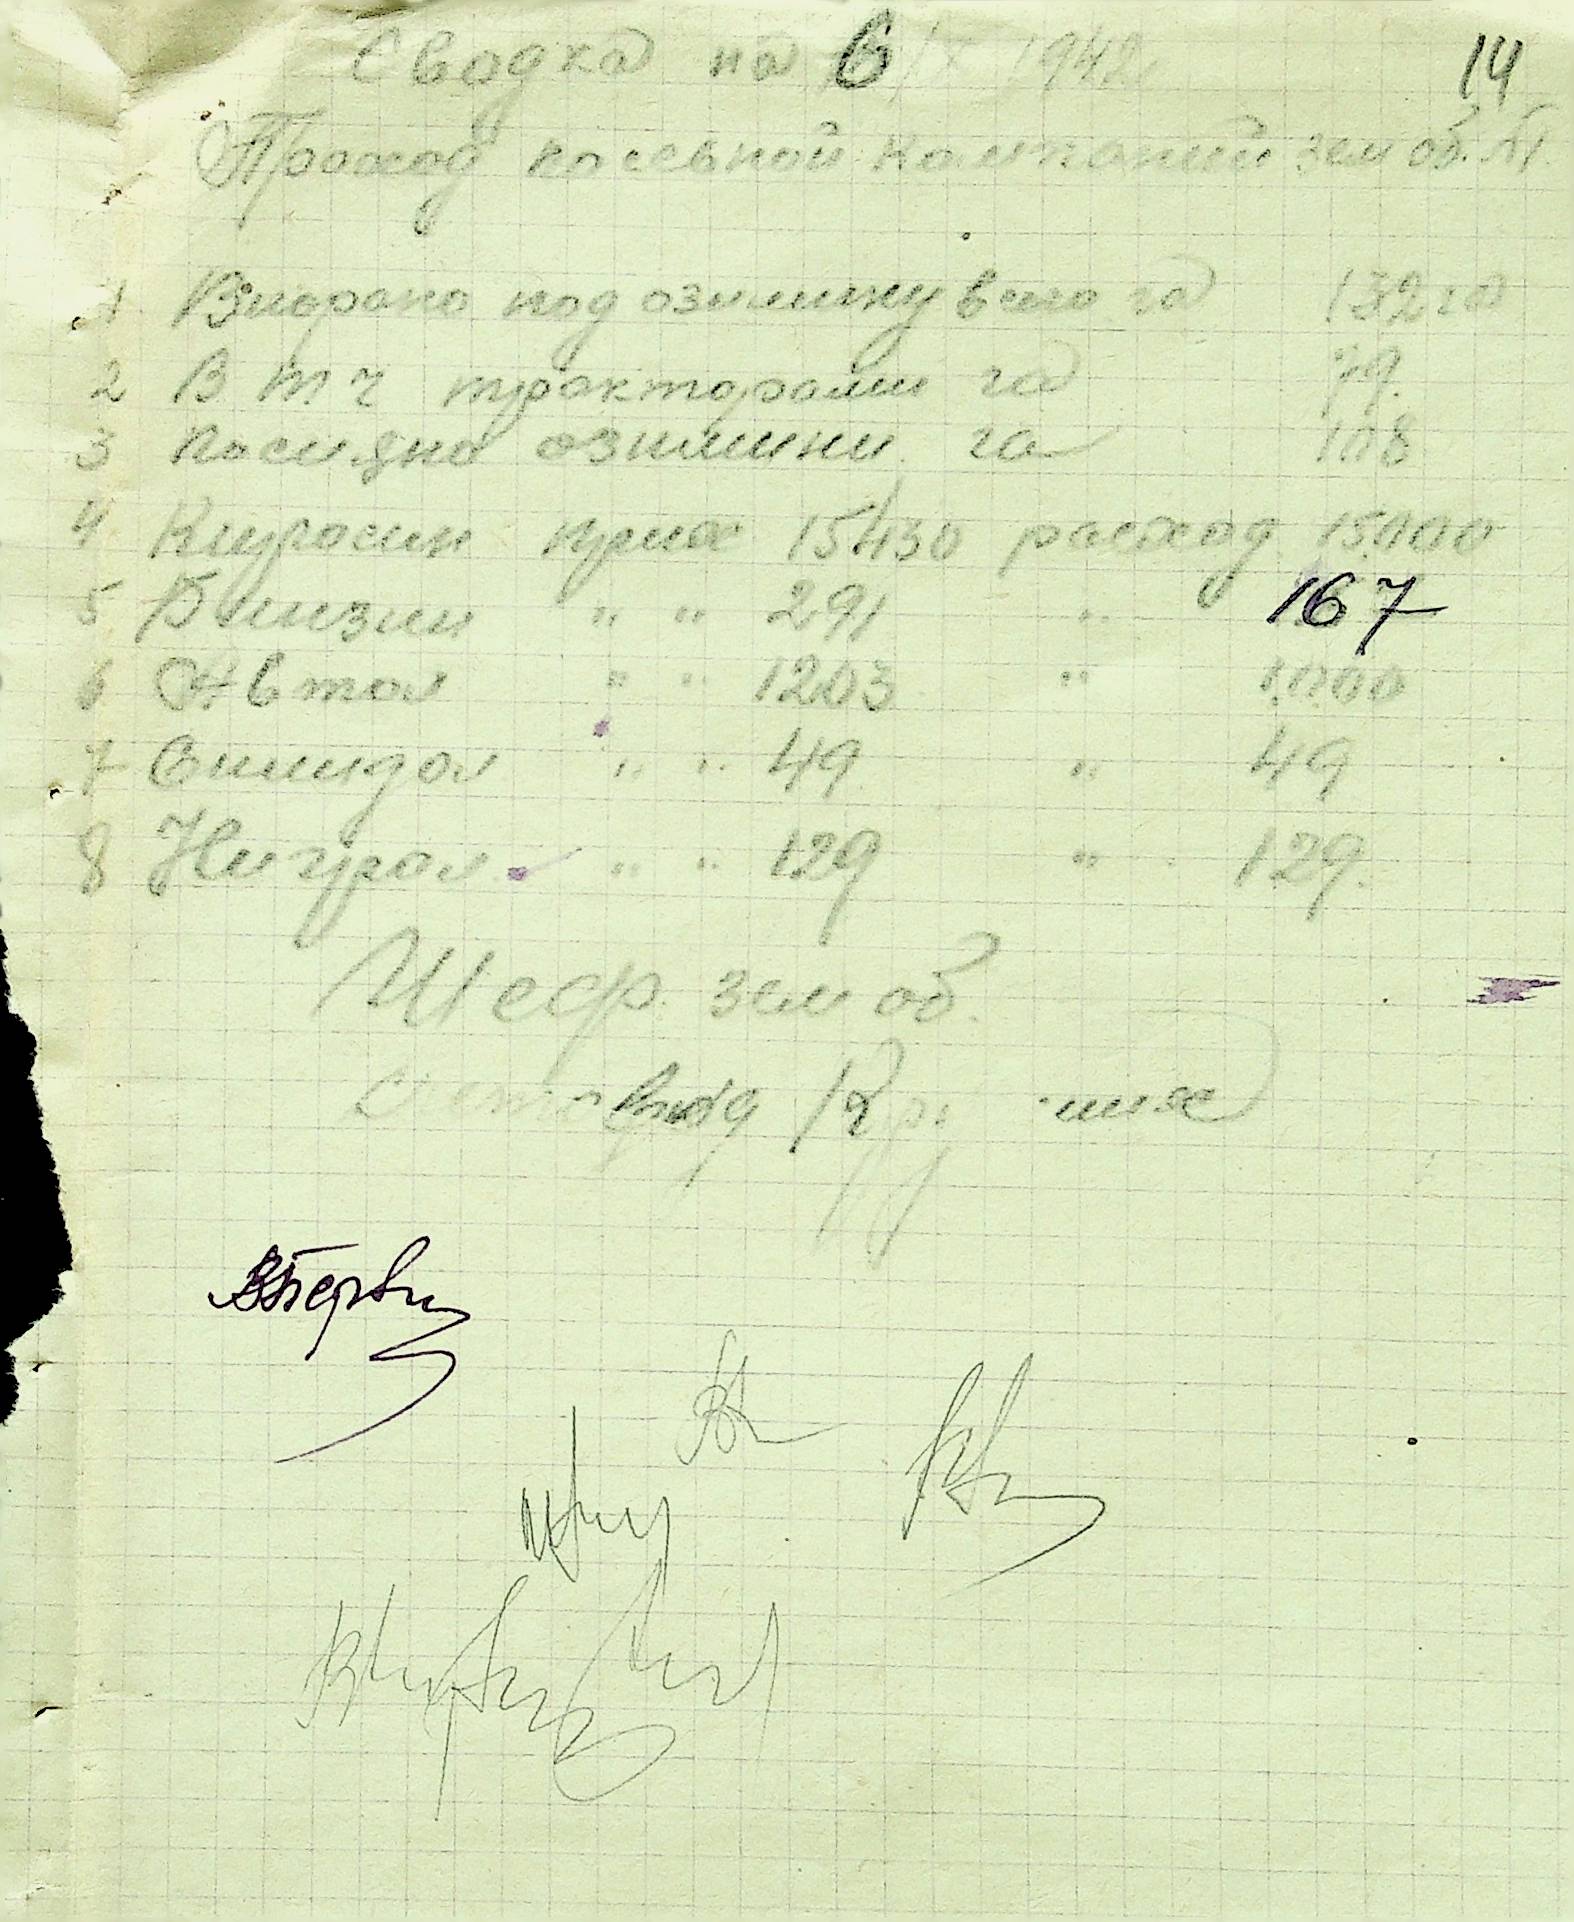 Сводка на 6/X 1942
14
Проход посевной компании зем об. №1
1 Вспорано под озимину всего га 132 га
2 В т. ч тракторами га 79.
3 Посеяно озимини га 108
4 Киросин приход 15430 расход 15000
5 Бинзин " " 291 " 167
6 Автол " " 1203 " 1000
7 Симидол " " 49 " 49
8 Нигрол " " 129 " 129.
Шеф. зем об.